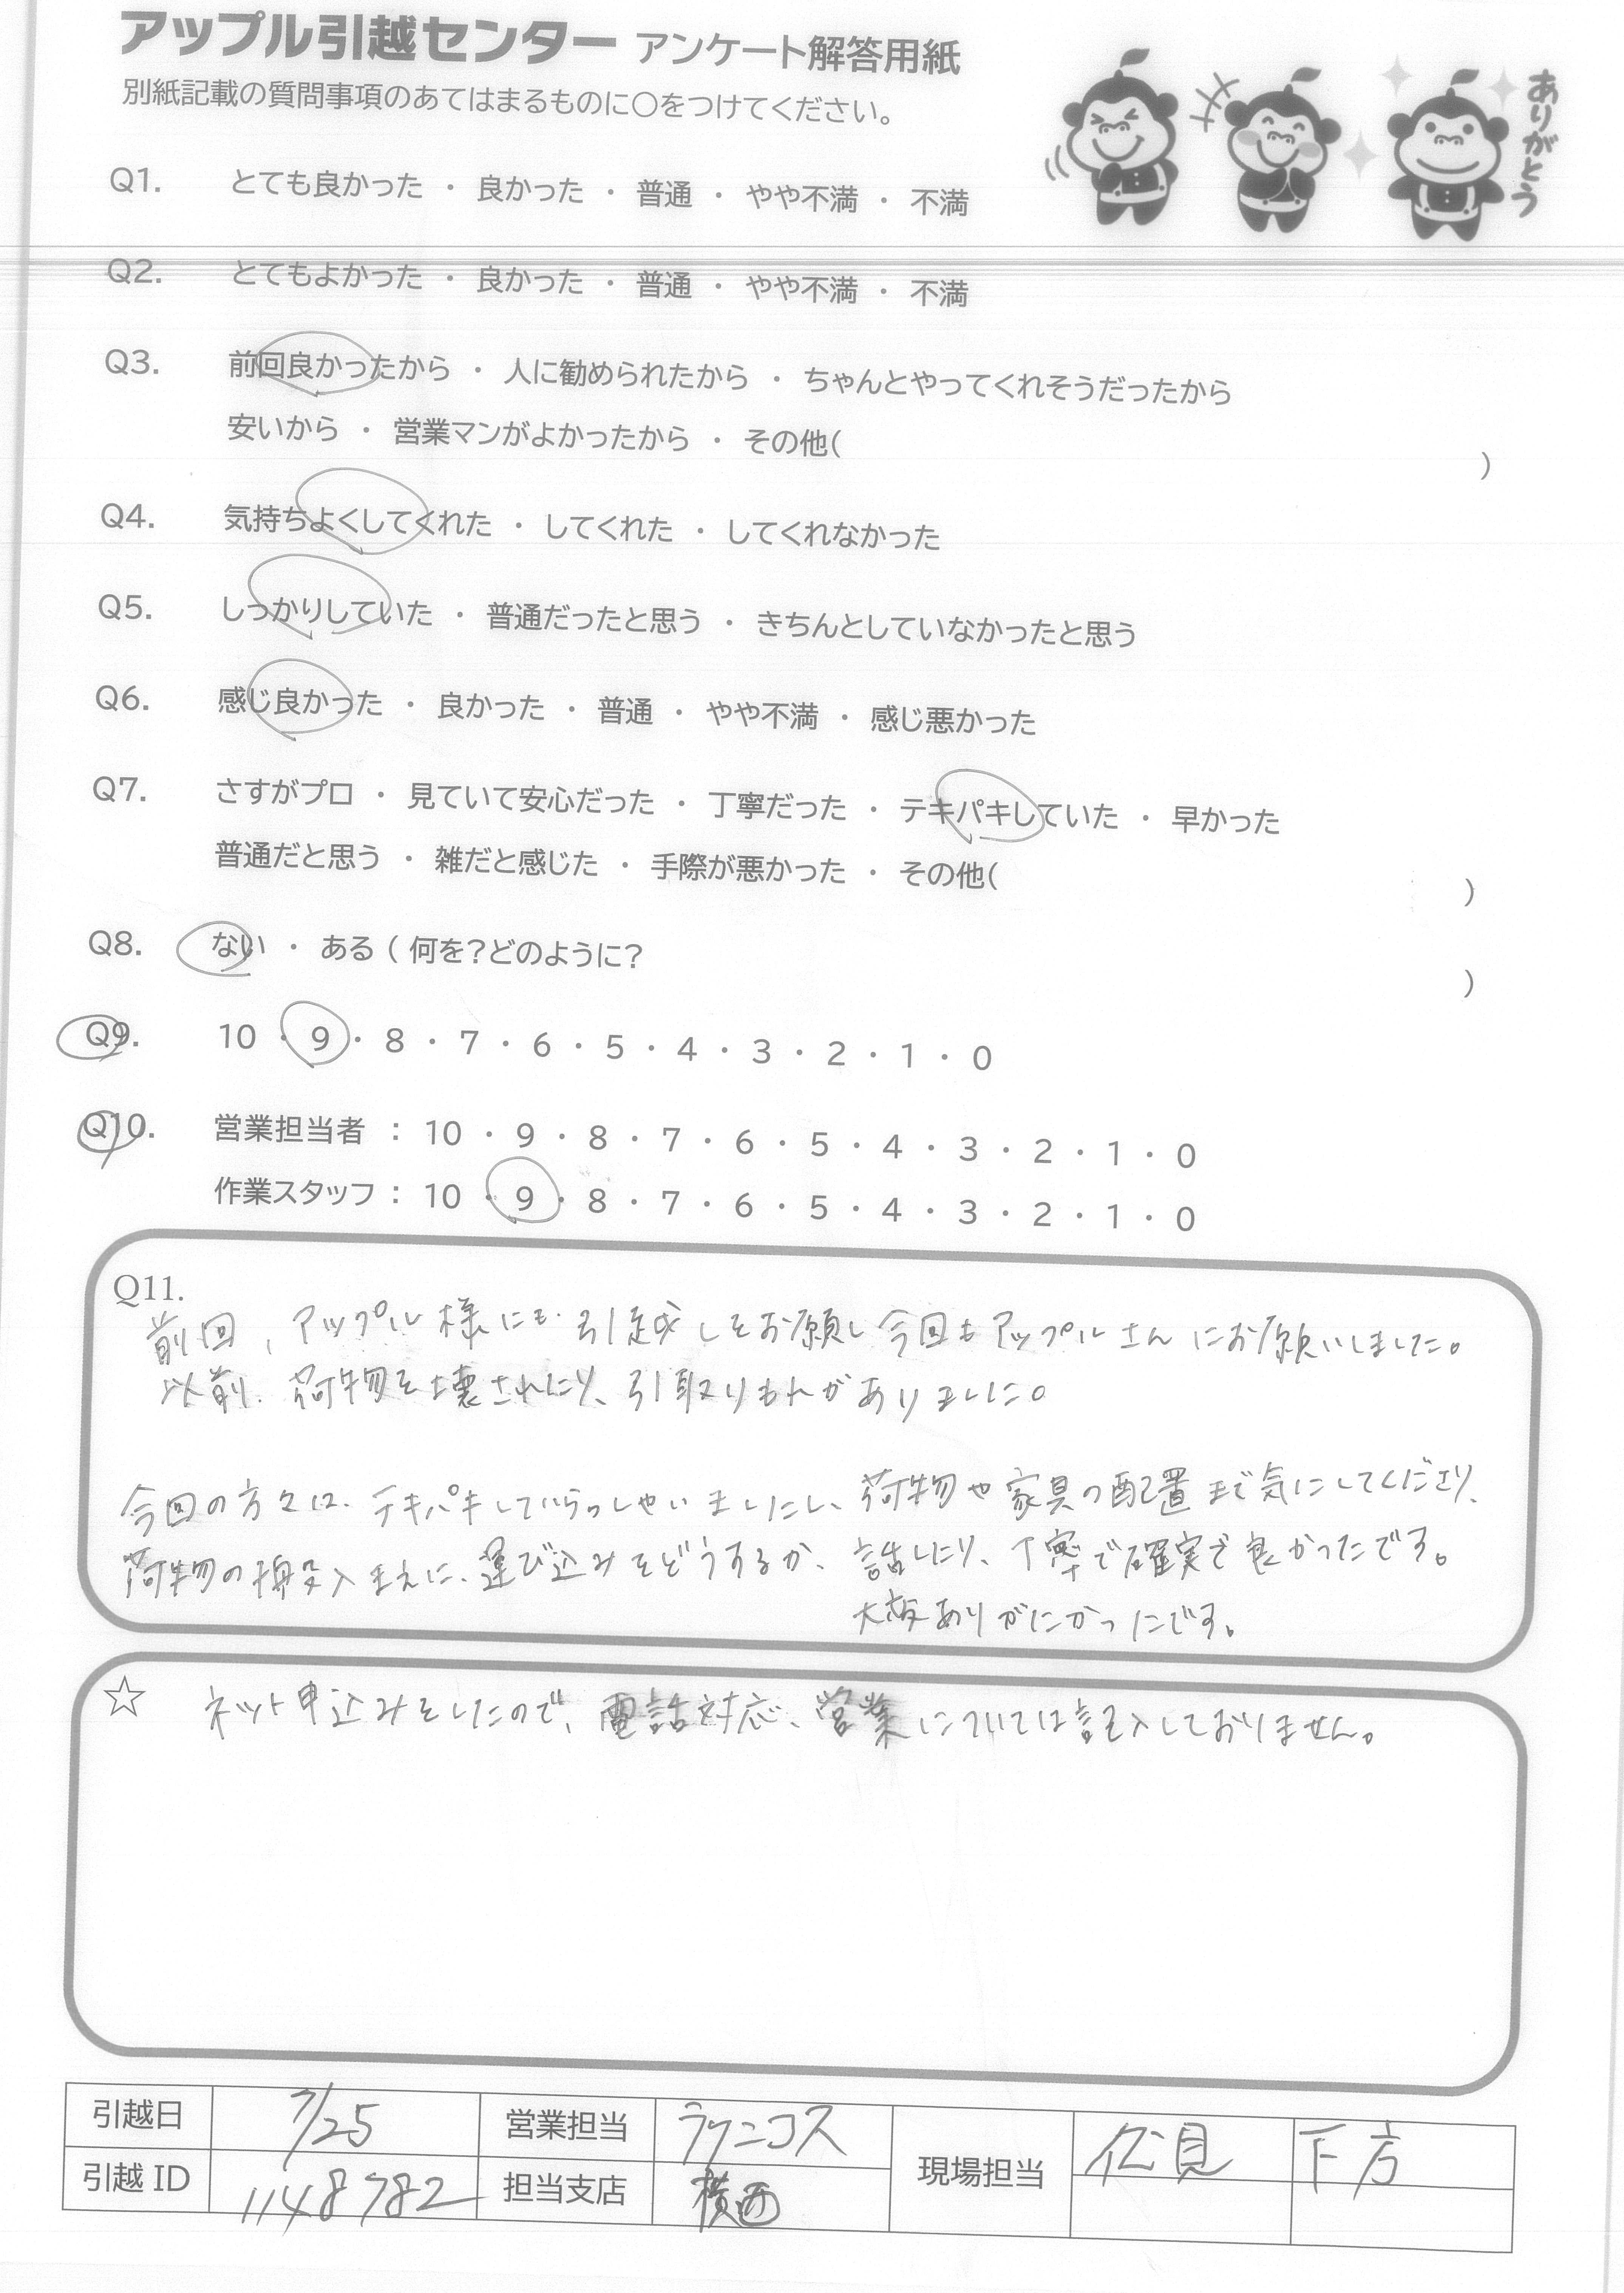 アップル引越センター アンケート解答用紙
別紙記載の質問事項のあてはまるものに○をつけてください。
ありがとう
Q1. とても良かった ・ 良かった ・ 普通 ・ やや不満 ・ 不満
Q2. とてもよかった ・ 良かった ・ 普通 ・ やや不満 ・ 不満
Q3. 前回良かったから ・ 人に勧められたから ・ ちゃんとやってくれそうだったから
安いから ・ 営業マンがよかったから ・ その他( )
Q4. 気持ちよくしてくれた ・ してくれた ・ してくれなかった
Q5. しっかりしていた ・ 普通だったと思う ・ きちんとしていなかったと思う
Q6. 感じ良かった ・ 良かった ・ 普通 ・ やや不満 ・ 感じ悪かった
Q7. さすがプロ ・ 見ていて安心だった ・ 丁寧だった ・ テキパキしていた ・ 早かった
普通だと思う ・ 雑だと感じた ・ 手際が悪かった ・ その他( )
Q8. ない ・ ある ( 何を?どのように? )
Q9. 10 ・ 9 ・ 8 ・ 7 ・ 6 ・ 5 ・ 4 ・ 3 ・ 2 ・ 1 ・ 0
Q10. 営業担当者 : 10 ・ 9 ・ 8 ・ 7 ・ 6 ・ 5 ・ 4 ・ 3 ・ 2 ・ 1 ・ 0
作業スタッフ : 10 ・ 9 ・ 8 ・ 7 ・ 6 ・ 5 ・ 4 ・ 3 ・ 2 ・ 1 ・ 0
Q11.
前回、アップル様にも引越しをお願し今回もアップルさんにお願いしました。
以前、荷物を壊されたり、引取りもれがありました。
今回の方々は、テキパキしていらっしゃいましたし、荷物や家具の配置まで気にしてくださり、
荷物の搬入まえに、運び込みをどうするか、話したり、丁寧で確実で良かったです。
大変ありがたかったです。
☆ ネット申込みをしたので、電話対応、営業については記入しておりません。
引越日 7/25 営業担当 ラクニコス 現場担当 伏見 下方
引越 ID 1148782 担当支店 横西